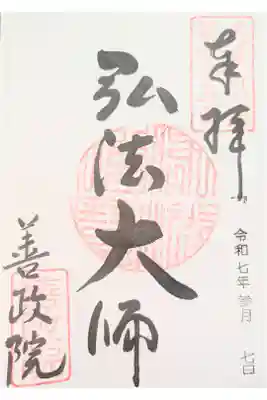 奉拝
令和七年参月七日
弘法大師
善政院